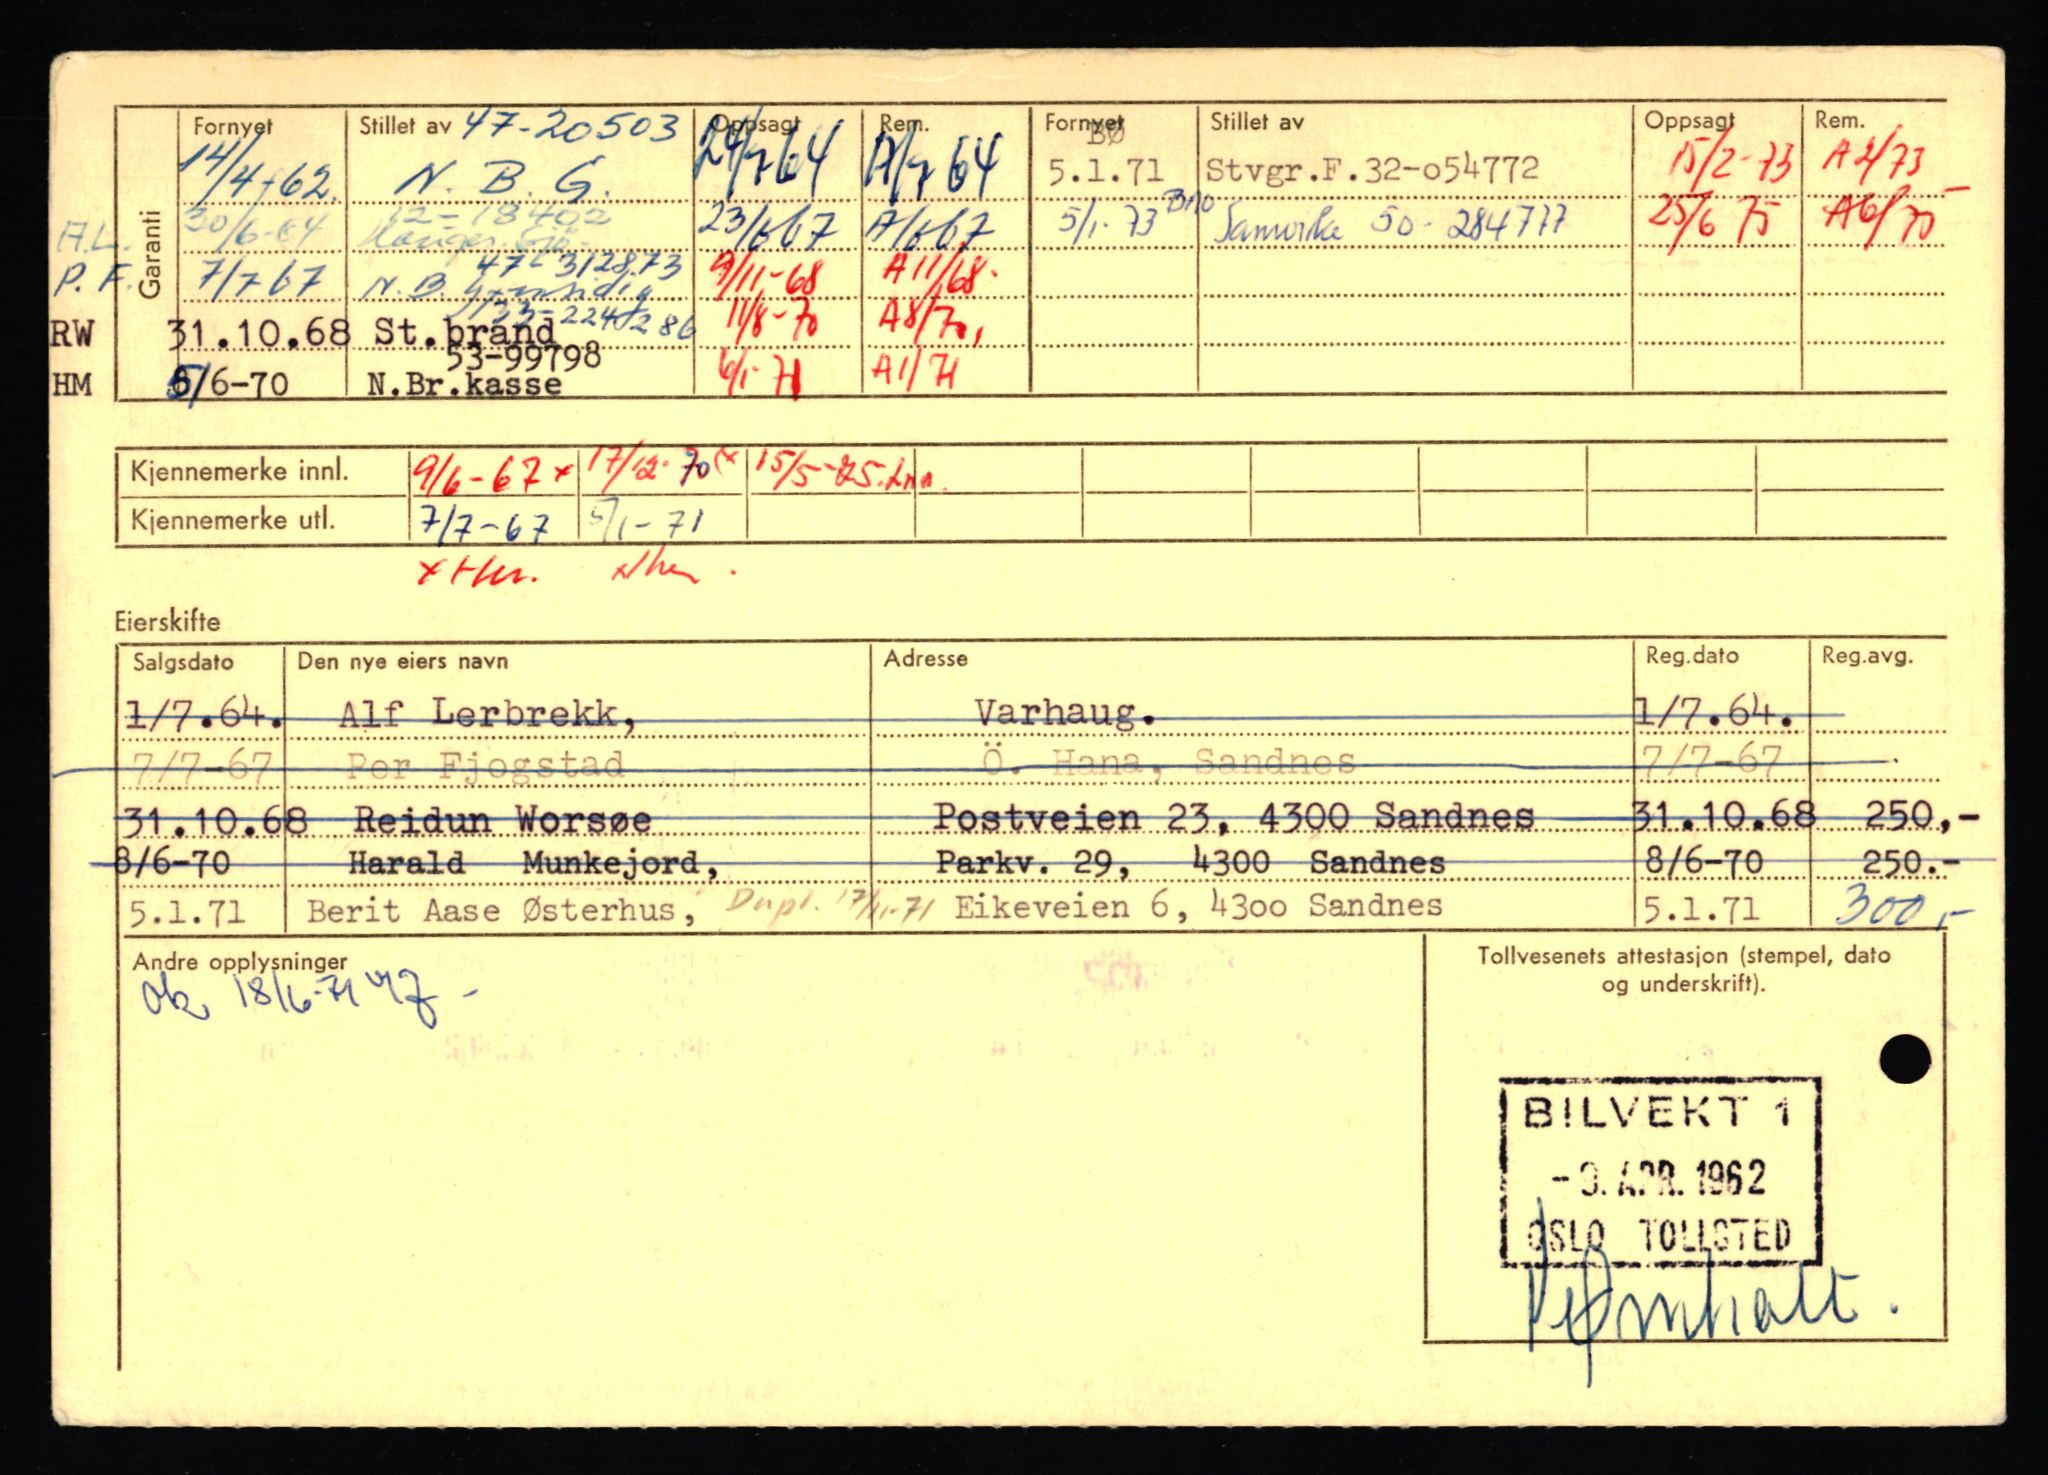 Garanti
Fornyet Stillet av 47-20503 Oppsagt Rem. Fornyet Stillet av Oppsagt Rem.
14/4-62. N. B. G. 24/7 64 A/7 64 BØ 5.1.71 Stvgr.F.32-o54772 15/2-73 A2/73
A.L. 30/6-64 12-18402 23/6 67 A/6 67 5/1-73 Samvirke 50-284777 25/6 75 A6/75
P.F. 7/7 67 47-312873 N.B. 9/11-68 A11/68.
RW 31.10.68 St.brand 11/8-70 A8/70,
53-99798
HM 5/6-70 N.Br.kasse 6/1-71 A1/71
Kjennemerke innl. 9/6-67 x 17/12-70 x 15/5-75
Kjennemerke utl. 7/7-67 5/1-71
Eierskifte
Salgsdato Den nye eiers navn Adresse Reg.dato Reg.avg.
1/7.64. Alf Lerbrekk, Varhaug. 1/7.64.
7/7-67 Per Fjogstad Ö. Hana, Sandnes 7/7-67
31.10.68 Reidun Worsøe Postveien 23, 4300 Sandnes 31.10.68 250,-
8/6-70 Harald Munkejord, Parkv. 29, 4300 Sandnes 8/6-70 250.-
5.1.71 Berit Aase Østerhus, Dupl. 17/11-71 Eikeveien 6, 43oo Sandnes 5.1.71 300,-
Andre opplysninger
ok 18/6-71
Tollvesenets attestasjon (stempel, dato
og underskrift).
BILVEKT 1
APR. 1962
OSLO TOLLSTED